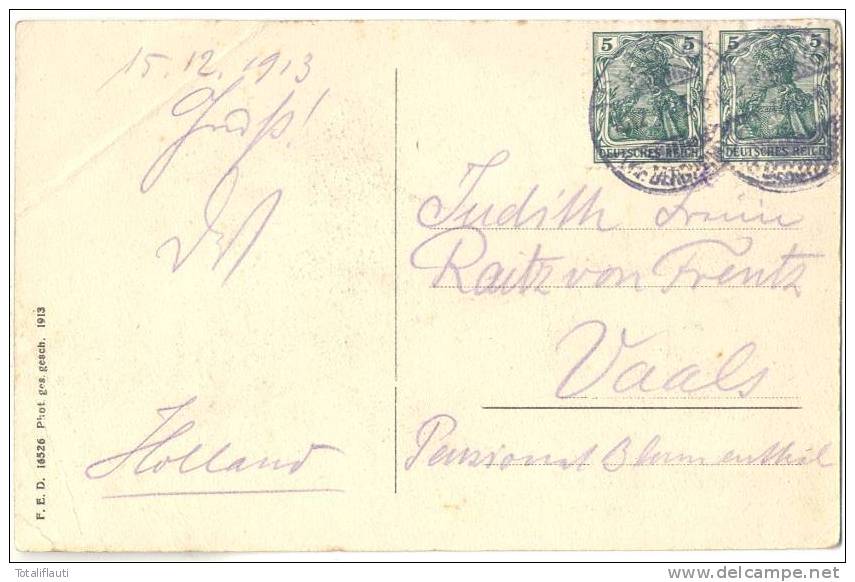 15.12.1913
Gruß!
Holland
5 5
DEUTSCHES REICH
5 5
DEUTSCHES REICH
Judith Freiin
Raitz von Frentz
Vaals
Pensionat Blumenthal
F. E. D. 16526 Phot. ges. gesch. 1913
Totaliflauti
www.delcampe.net